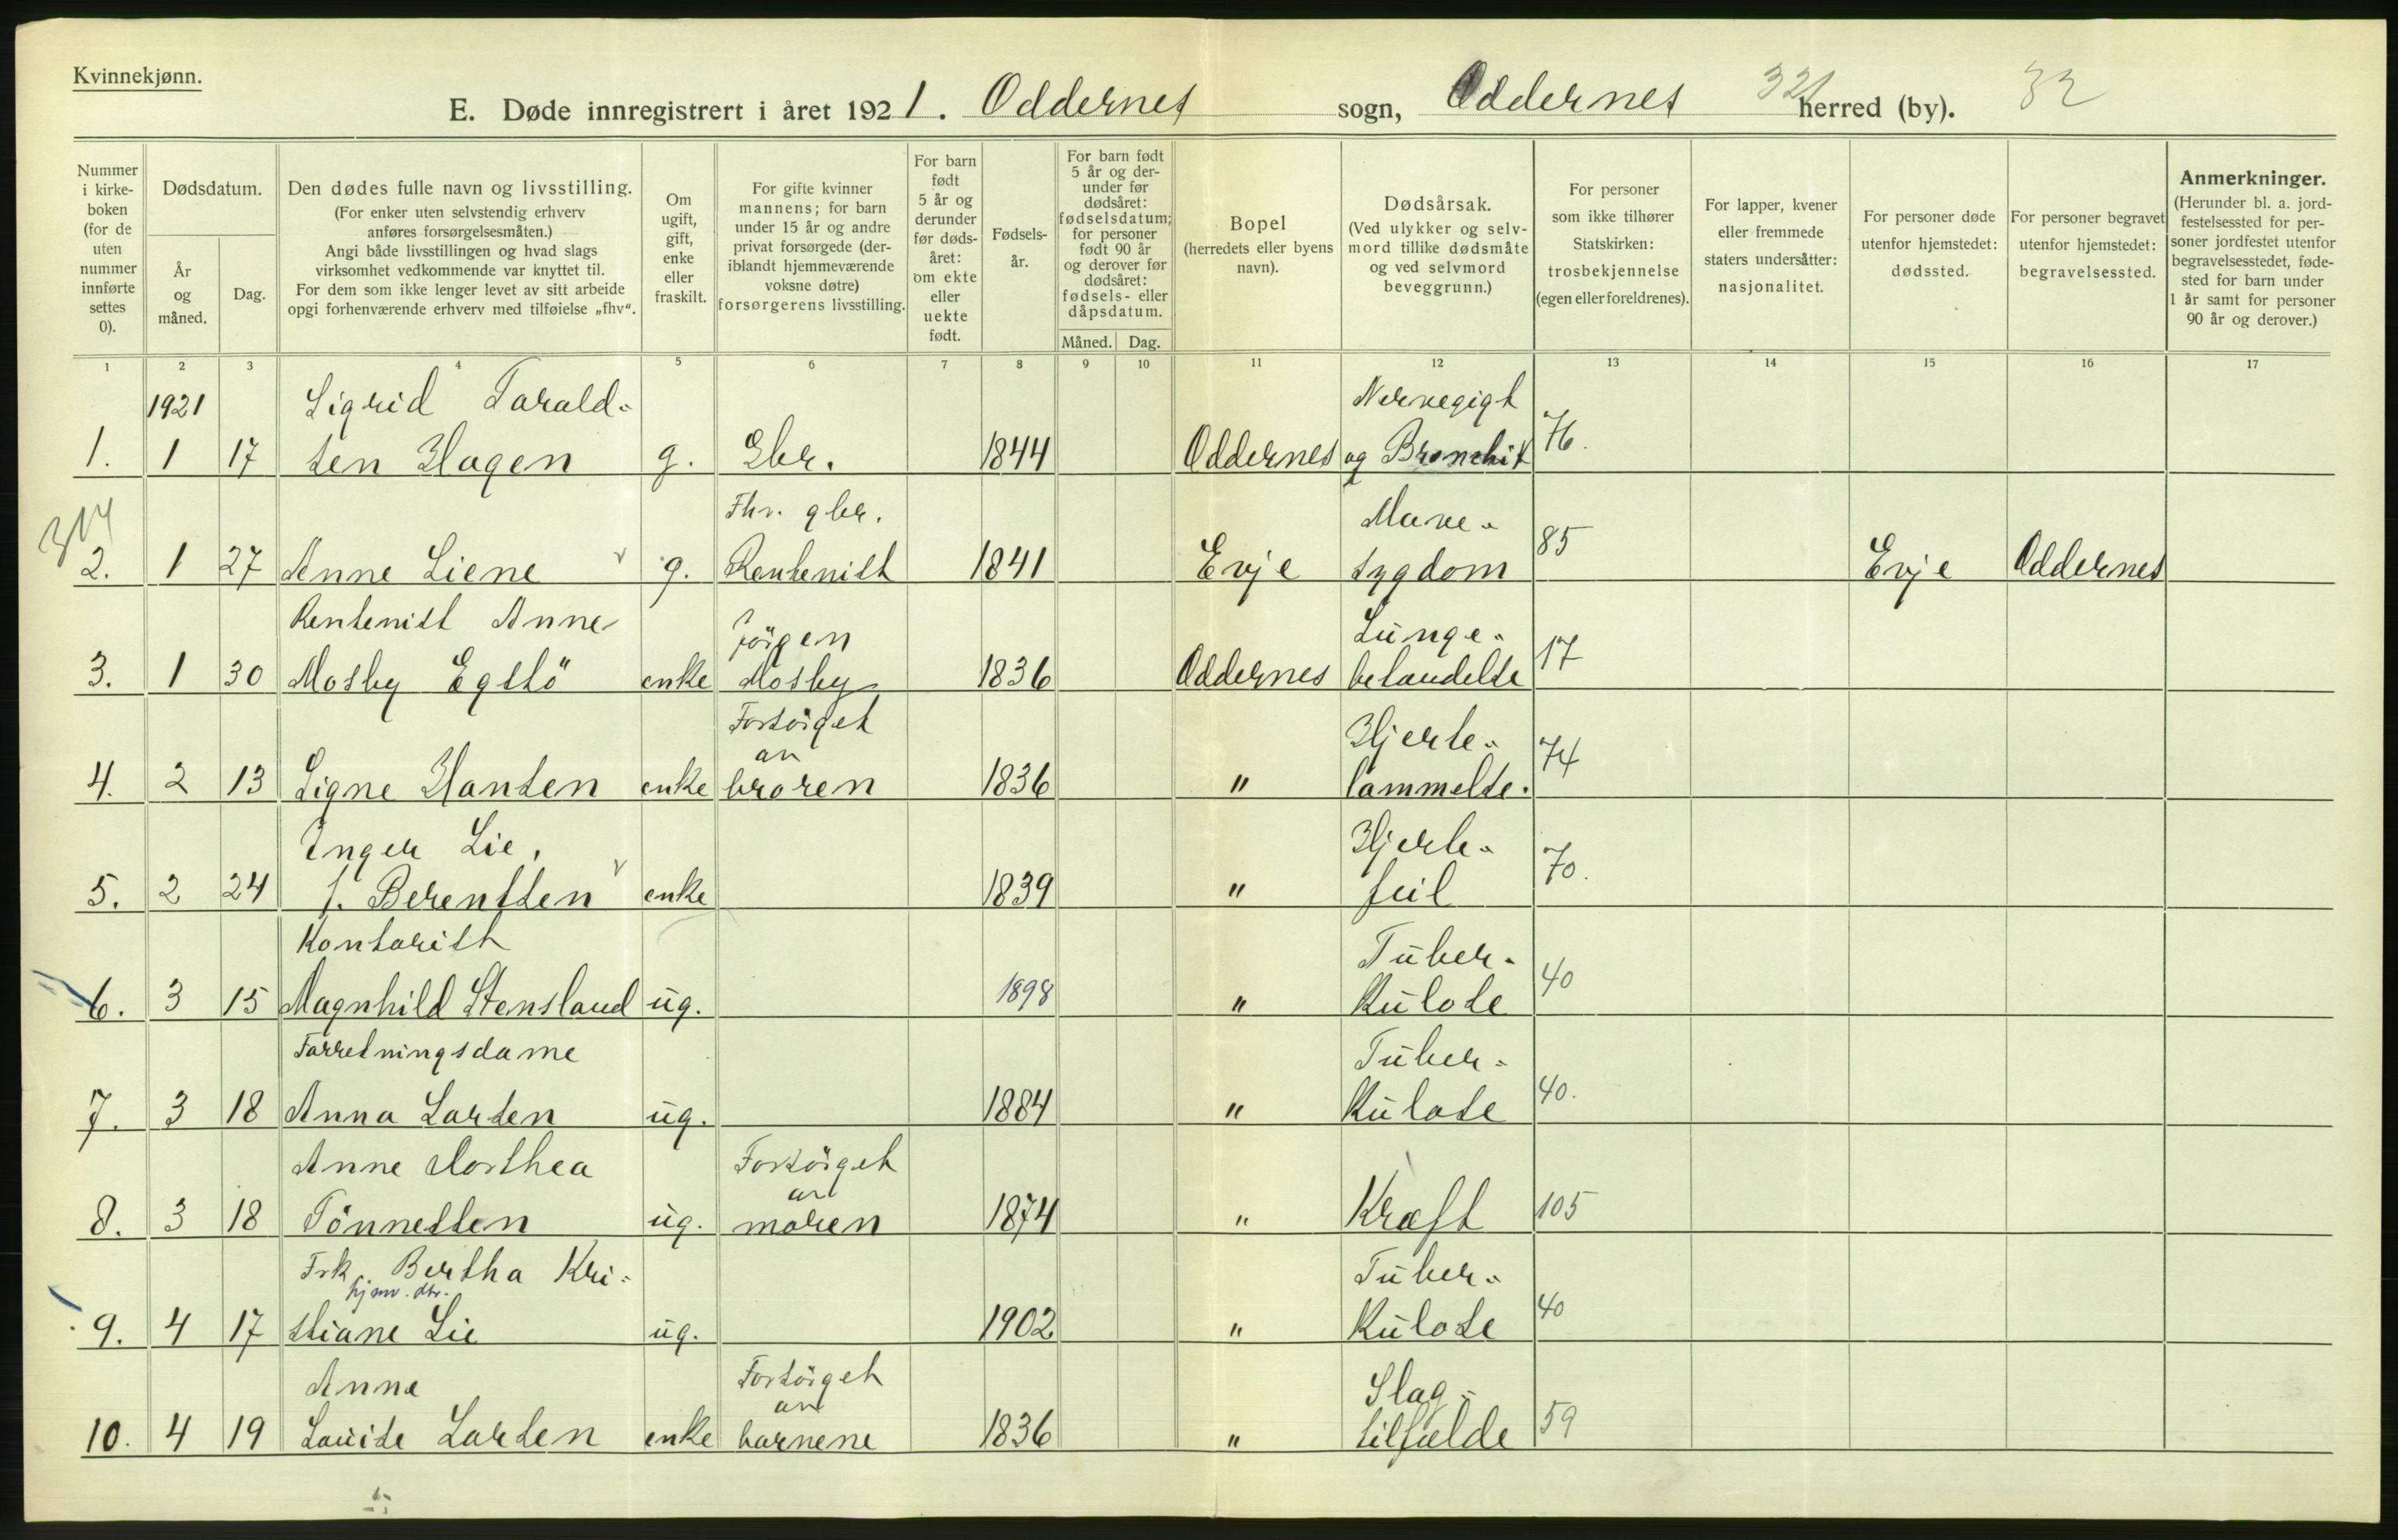 Kvinnekjønn.
E. Døde innregistrert i året 1921. Oddernes sogn, Oddernes herred (by). 321 32
Nummer i kirke- boken (for de uten nummer innførte settes 0).
Dødsdatum.
År og måned.
Dag.
Den dødes fulle navn og livsstilling.
(For enker uten selvstendig erhverv anføres forsørgelsesmåten.)
Angi både livsstillingen og hvad slags virksomhet vedkommende var knyttet til.
For dem som ikke lenger levet av sitt arbeide opgi forhenværende erhverv med tilføielse „fhv“.
Om ugift, gift, enke eller fraskilt.
For gifte kvinner mannens; for barn under 15 år og andre privat forsørgede (der- iblandt hjemmeværende voksne døtre) forsørgerens livsstilling.
For barn født 5 år og derunder før døds- året: om ekte eller uekte født.
Fødsels- år.
For barn født 5 år og der- under før dødsåret: fødselsdatum; for personer født 90 år og derover før dødsåret: fødsels- eller dåpsdatum.
Måned. Dag.
Bopel (herredets eller byens navn).
Dødsårsak. (Ved ulykker og selv- mord tillike dødsmåte og ved selvmord beveggrunn.)
For personer som ikke tilhører Statskirken: trosbekjennelse (egen eller foreldrenes).
For lapper, kvener eller fremmede staters undersåtter: nasjonalitet.
For personer døde utenfor hjemstedet: dødssted.
For personer begravet utenfor hjemstedet: begravelsessted.
Anmerkninger.
(Herunder bl. a. jord- festelsessted for per- soner jordfestet utenfor begravelsesstedet, føde- sted for barn under 1 år samt for personer 90 år og derover.)
1 2 3 4 5 6 7 8 9 10 11 12 13 14 15 16 17
1921 Sigrid Tarald- Nervegigt
1. 1 17 sen Hagen g. Gbr. 1844 Oddernes og Bronchit 76.
314 Fhv. gbr. Mave-
2. 1 27 Anne Liene v g. Rentenist 1841 Evje sygdom 85 Evje Oddernes
Rentenist Anne Jörgen Lunge-
3. 1 30 Mosby Egslö enke Mosby 1836 Oddernes betændelse 17
Forsörget av Hjerte-
4. 2 13 Signe Hansen enke broren 1836 " lammelse. 74
Inger Lie, Hjerte-
5. 2 24 f. Berentsen v enke 1839 " feil 70.
Kontorist Tuber-
6. 3 15 Magnhild Stensland ug. 1898 " kulose 40
Forretningsdame Tuber-
7. 3 18 Anna Larsen ug. 1884 " kulose 40.
Anne Dorthea Forsörget av
8. 3 18 Tönnessen ug. moren 1874 " Kræft 105
Frk. Bertha Kri- Tuber-
hjmv. dtr.
9. 4 17 stiane Lie ug. 1902 " kulose 40
Anne Forsörget av Slag-
10. 4 19 Louise Larsen enke barnene 1836 " tilfælde 59